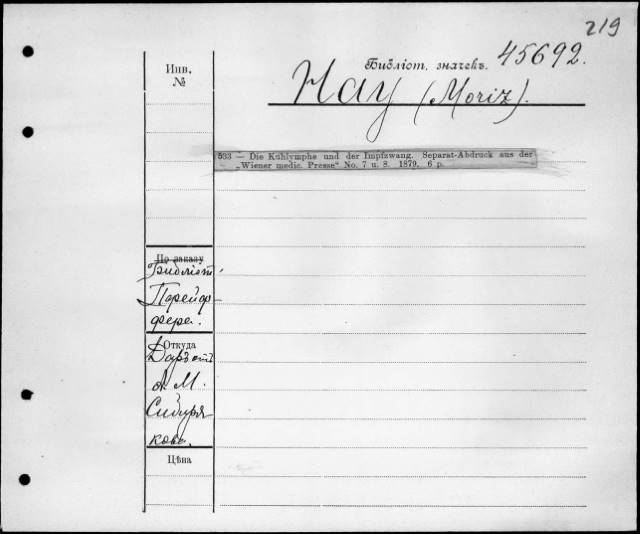 219
Библіот. значекъ. 45692.
Инв.
№
Hay (Moriz).
533 — Die Kuhlymphe und der Impfzwang. Separat-Abdruck aus der
„Wiener medic. Presse“ No. 7 u. 8. 1879. 6 p.
По заказу
Библіот.
Порейф-
фера.
Откуда
Даръ отъ
А. М.
Сибиря-
кова.
Цѣна